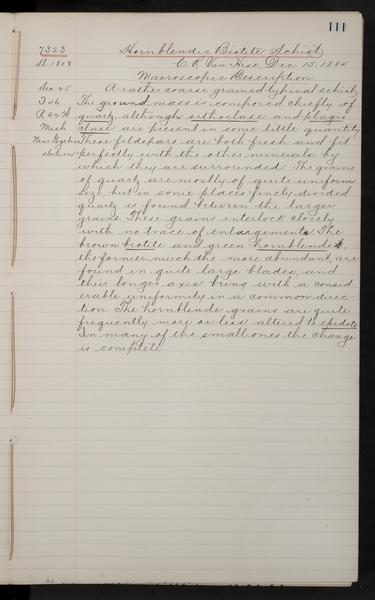 111
7323 Hornblendic Biotite Schist
Sl. 1808 C. R. Van Hise, Dec. 15. 1884
Macroscopic Description.
Sec. 25 A rather coarse grained typical schist
T. 46 The ground mass is composed chiefly of
R. 44 W. quartz, although orthoclase and plagio
Mich clase are present in some little quantity
Near Gogebic These feldspars are both fresh and fit
station perfectly with the other minerals by
which they are surrounded. The grains
of quartz are mostly of quite uniform
size, but in some places finely divided
quartz is found between the larger
grains. These grains interlock closely
with no trace of enlargements. The
brown biotite and green hornblende,
the former much the more abundant, are
found in quite large blades, and
their longer axes bring with a consid
erable uniformity in a common direc-
tion. The hornblende grains are quite
frequently more or less altered to epidote
In many of the small ones the change
is complete.